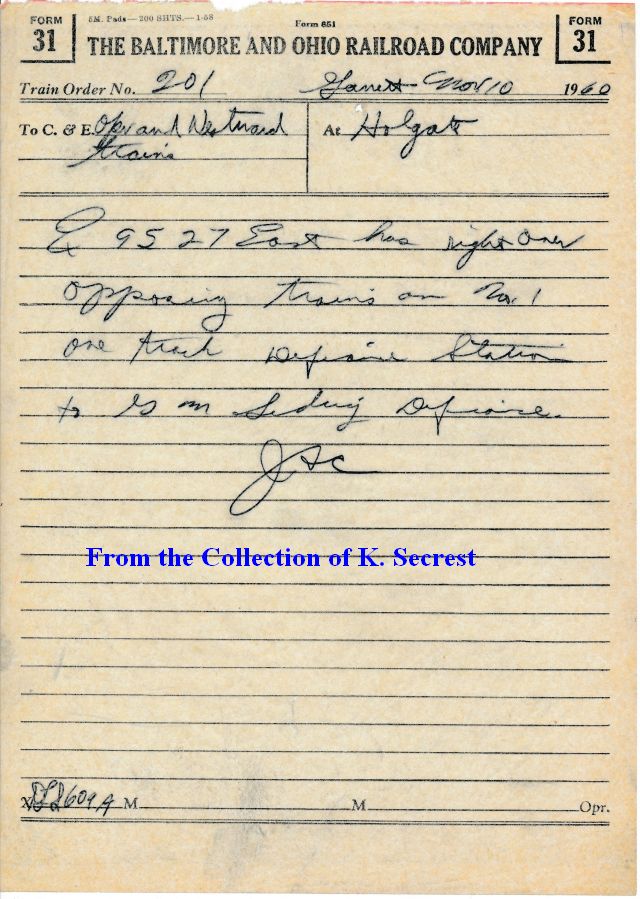 FORM 31
5M. Pads—200 SHTS.—1-58
Form 851
FORM 31
THE BALTIMORE AND OHIO RAILROAD COMPANY
Train Order No. 201 Garrett Nov 10 1960
To C. & E. Opr and Westward trains
At Holgate
Ex 9527 East has right over
opposing trains on No. 1
one track Defiance Station
to GM Siding Defiance.
JHC
From the Collection of K. Secrest
609A M M Opr.